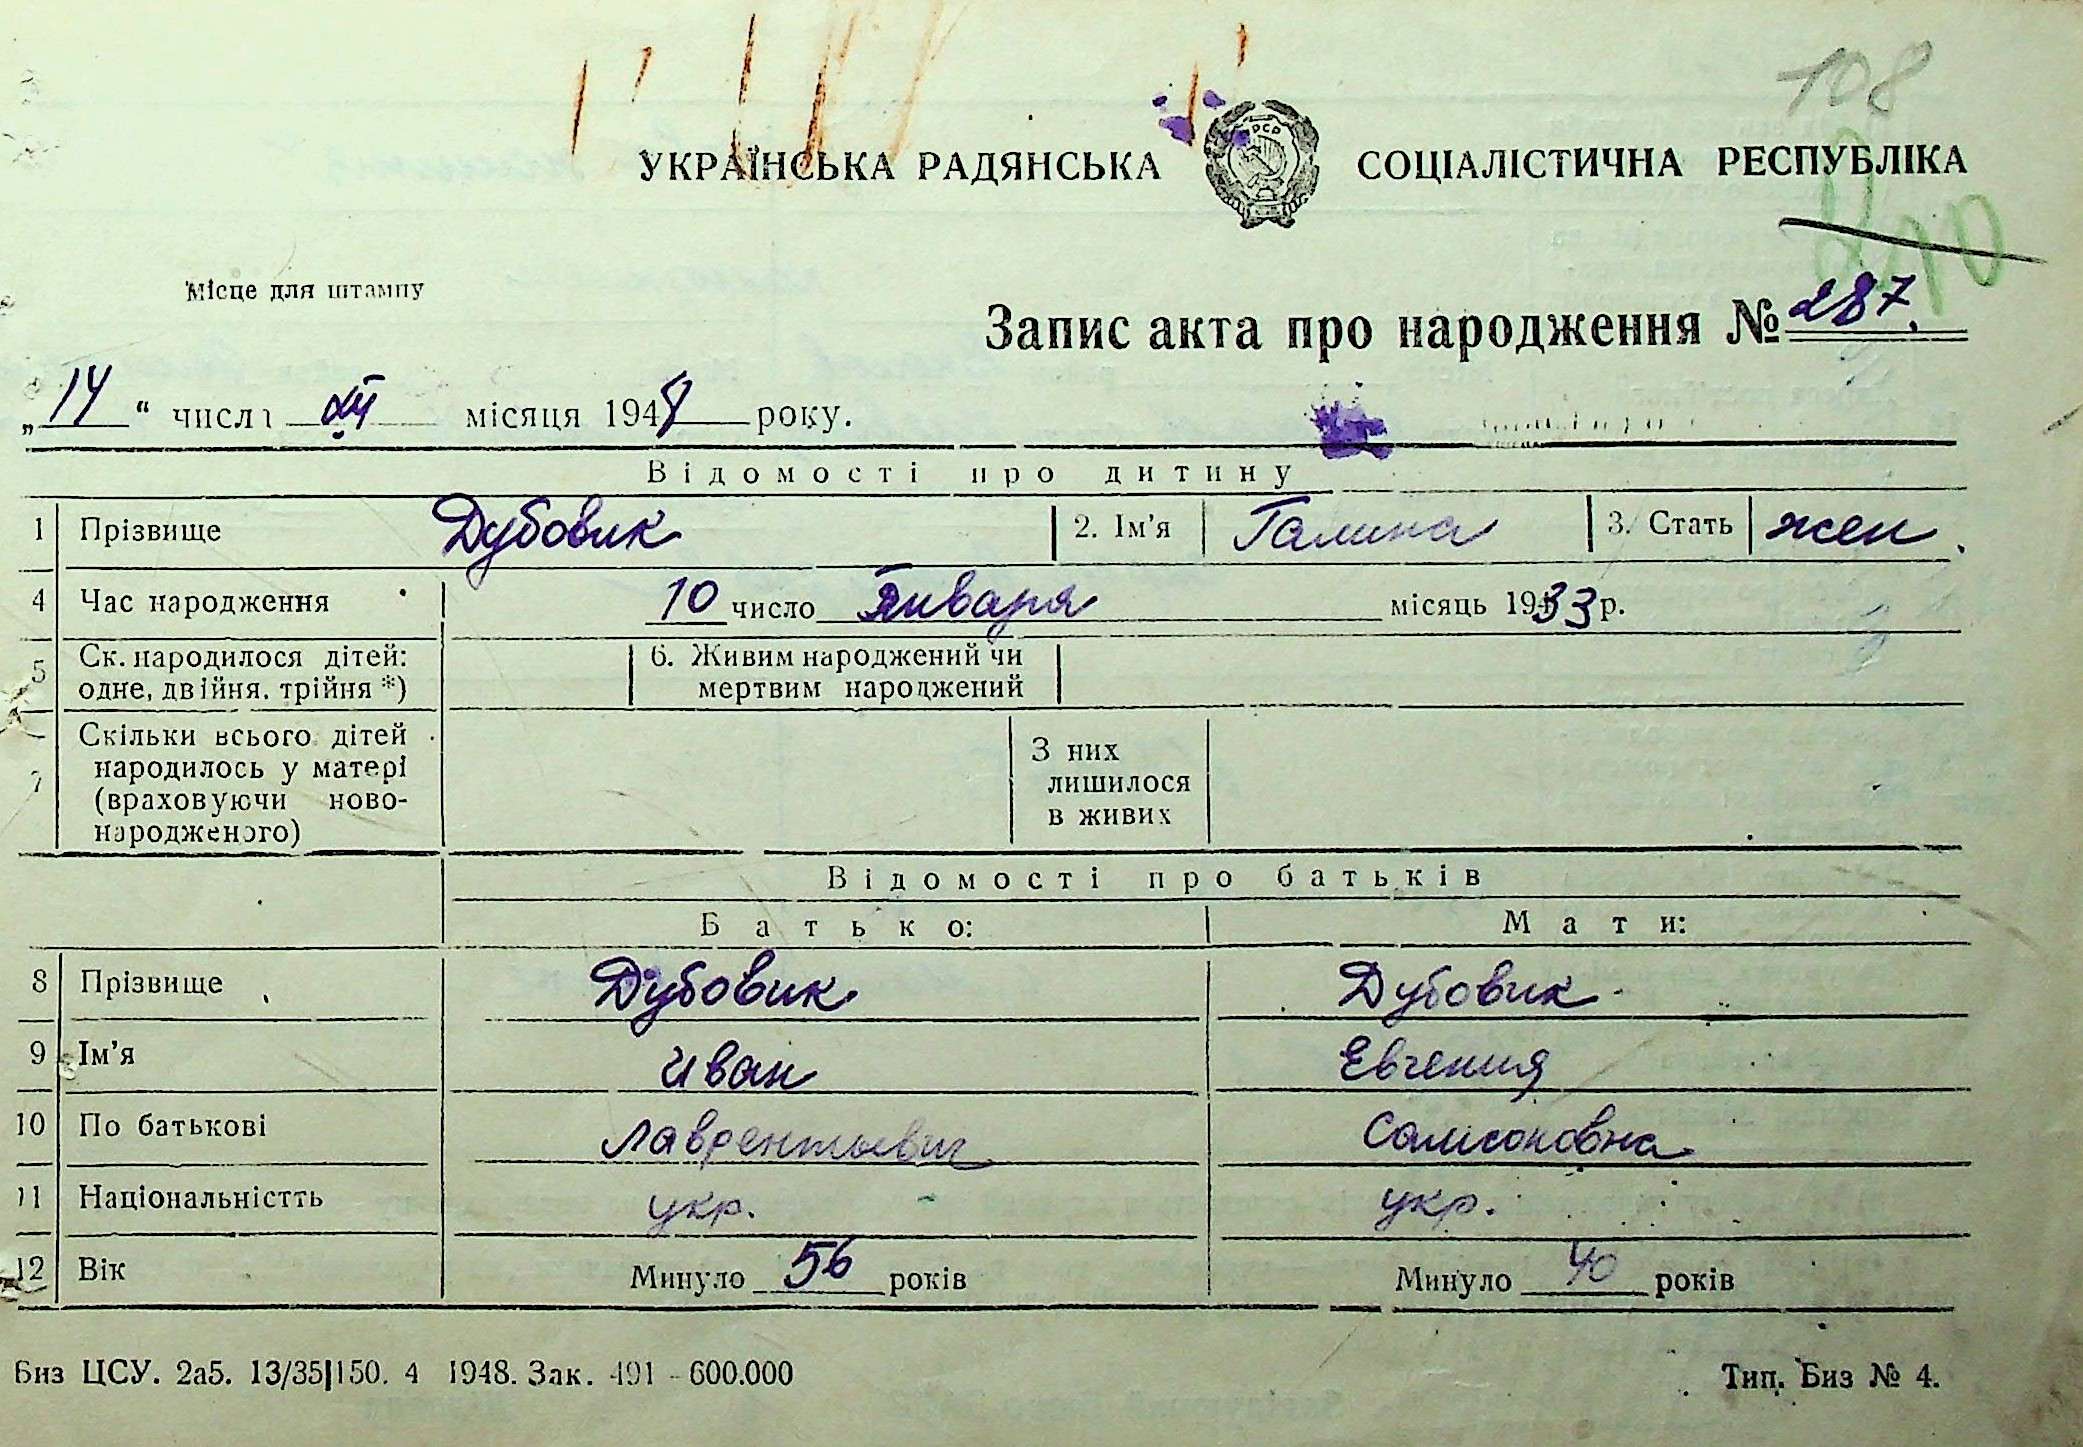 108
УКРАЇНСЬКА РАДЯНСЬКА СОЦІАЛІСТИЧНА РЕСПУБЛІКА
Місце для штампу
Запис акта про народження № 287.
„14“ числа XII місяця 1949 року.
Відомості про дитину
1 Прізвище Дубовик 2. Ім'я Галина 3. Стать жен.
4 Час народження 10 число Января місяць 1933 р.
5 Ск. народилося дітей: одне, двійня, трійня *) 6. Живим народжений чи мертвим народжений
7 Скільки всього дітей народилось у матері (враховуючи новонародженого) З них лишилося в живих
Відомості про батьків
Батько: Мати:
8 Прізвище Дубовик Дубовик
9 Ім'я Иван Евгения
10 По батькові Лаврентьевич Самсоновна
11 Національністть укр. укр.
12 Вік Минуло 56 років Минуло 40 років
Биз ЦСУ. 2а5. 13/35|150. 4 1948. Зак. 491 - 600.000 Тип. Биз № 4.